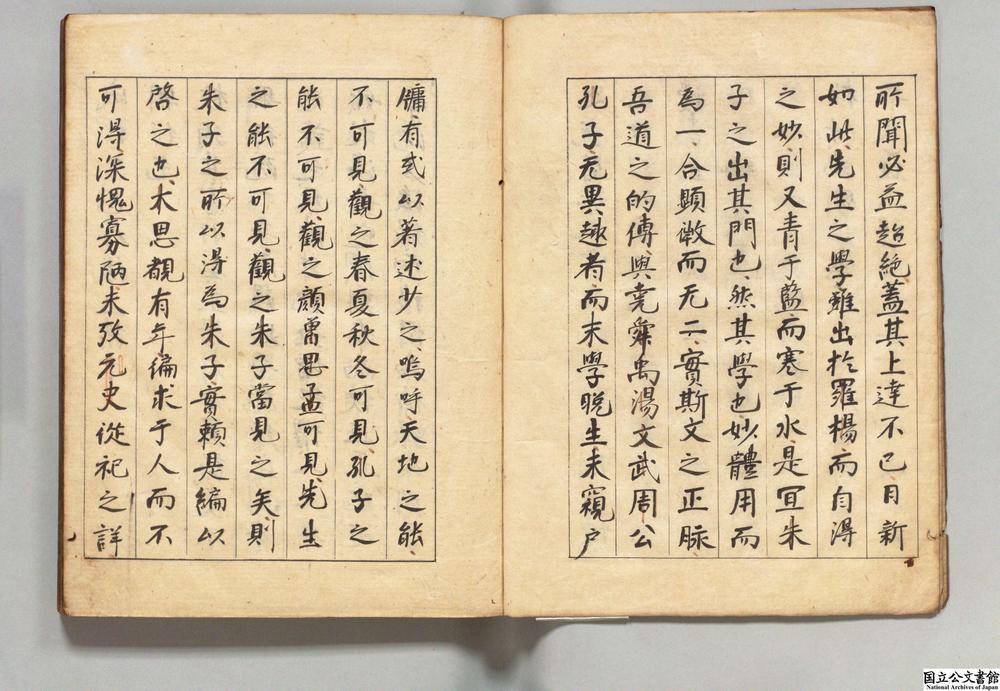 所聞必益超絶蓋其上達不已日新
如此先生之學雖出於羅楊而自得
之妙則又青于藍而寒于水是冝朱
子之出其門也然其學也妙體用而
為一合顯微而无二實斯文之正脉
吾道之的傳與堯舜禹湯文武周公
孔子无異趣者而末學晚生未窺戶
牖有或以著述少之嗚呼天地之能
不可見觀之春夏秋冬可見孔子之
能不可見觀之顔曽思孟可見先生
之能不可見觀之朱子當見之矣則
朱子之所以得為朱子實賴是編以
啓之也木思覩有年徧求于人而不
可得深愧寡陋未攷元史從祀之詳
国立公文書館
National Archives of Japan